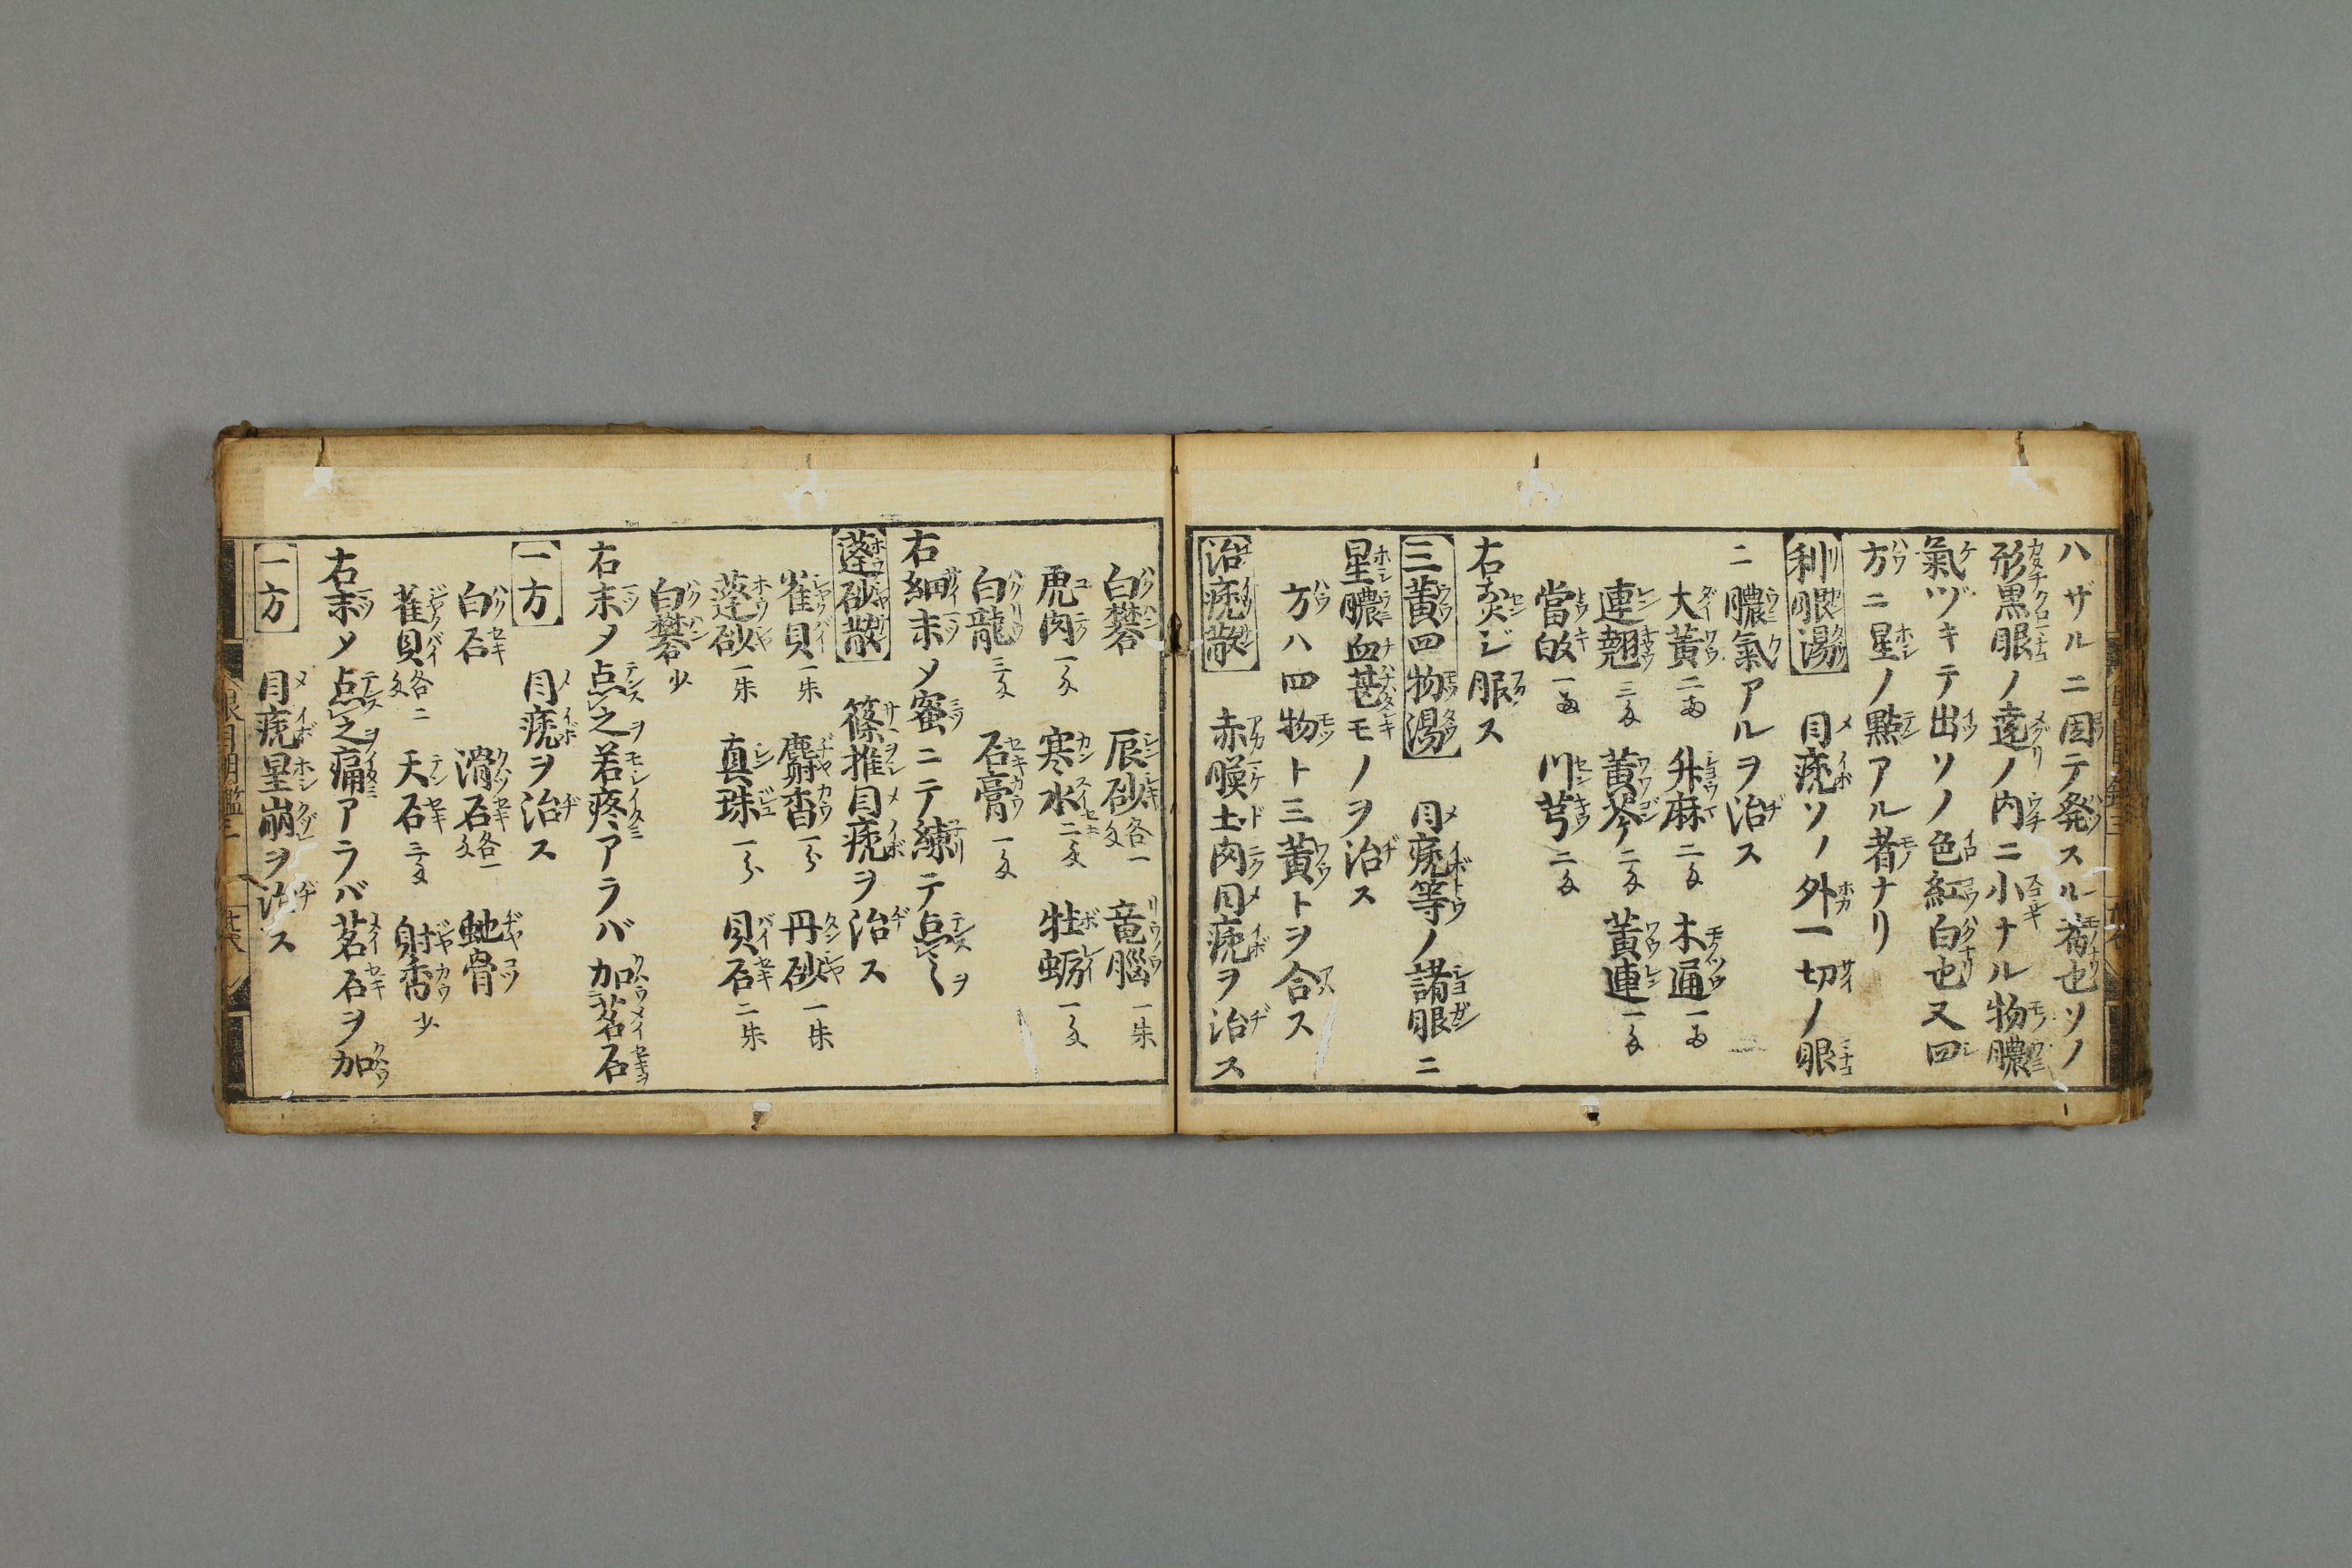 ハザルニ因テ発スル者也ソノ
形黒眼ノ遶ノ内ニ小ナル物膿
氣ヅキテ出ソノ色紅白也又四
方ニ星ノ點アル者ナリ
利眼湯 目疣ソノ外一切ノ眼
ニ膿氣アルヲ治ス
大黃二 升麻二 木通一
連翹三 黃芩二 黃連一
當皈一 川芎二
右煎ジ服ス
三黃四物湯 目疣等ノ諸眼ニ
星膿血甚モノヲ治ス
方ハ四物ト三黃トヲ合ス
治疣散 赤膜土肉目疣ヲ治ス
白礬 辰砂各一 竜腦一朱
虎肉一 寒水二 牡蛎一
白龍三 石膏一
右細末〆蜜ニテ練テ点之
蓬砂散 篠推目疣ヲ治ス
雀貝一朱 麝香一分 丹砂一朱
蓬砂一朱 真珠一分 貝石二朱
白礬少
右末〆点之若疼アラバ加茗石
一方 目疣ヲ治ス
白石 滑石各一 虵骨
雀貝各二 天石三 射香少
右末〆点之痛アラバ茗石ヲ加
一方 目疣星崩ヲ治ス